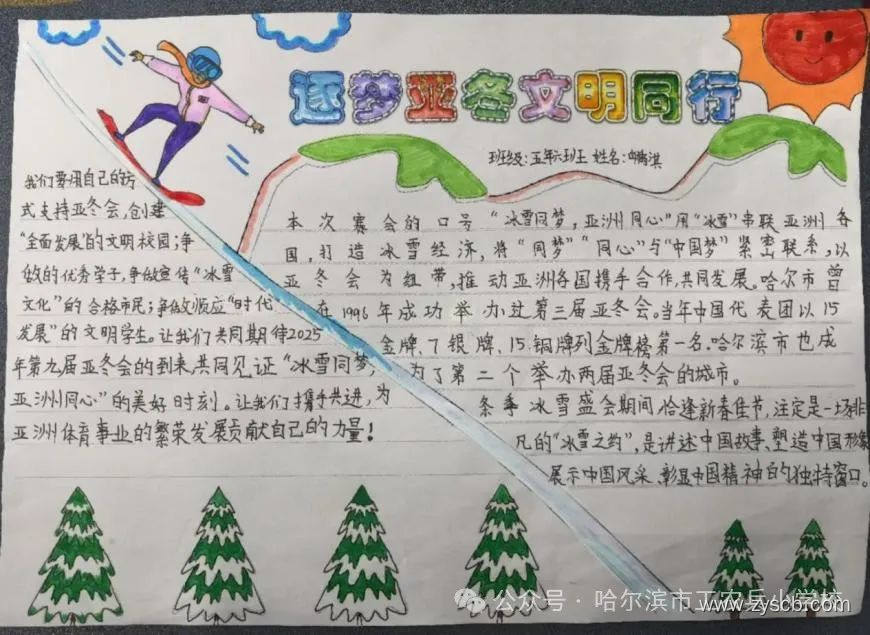 逐梦亚冬文明同行
班级:五年六班 姓名:
我们要用自己的方
式支持亚冬会,创建
“全面发展”的文明校园;争
做的优秀学子,争做宣传“冰雪
文化”的合格市民;争做顺应“时代
发展”的文明学生。让我们共同期待2025
年第九届亚冬会的到来,共同见证“冰雪同梦,
亚洲同心”的美好时刻。让我们携手共进,为
亚洲体育事业的繁荣发展贡献自己的力量!
本次赛会的口号“冰雪同梦,亚洲同心”用“冰雪”串联亚洲各
国,打造冰雪经济,将“同梦”“同心”与“中国梦”紧密联系,以
亚冬会为纽带,推动亚洲各国携手合作,共同发展。哈尔市曾
在1996年成功举办过第三届亚冬会。当年中国代表团以15
金牌、7银牌、15铜牌列金牌榜第一名.哈尔滨市也成
为了第二个举办两届亚冬会的城市。
冰雪盛会期间,恰逢新春佳节,注定是一场非
凡的“冰雪之约”,是讲述中国故事、塑造中国形象
展示中国风采、彰显中国精神的独特窗口。
公众号·哈尔滨市工农兵小学校
www.zyscb.com